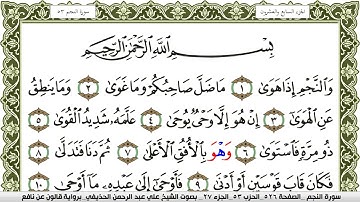 الجزء السابع والعشرون سورة النجم ٥٣
بِسْمِ اللَّهِ الرَّحْمَٰنِ الرَّحِيمِ
وَالنَّجْمِ إِذَا هَوَىٰ ١ مَا ضَلَّ صَاحِبُكُمْ وَمَا غَوَىٰ ٢ وَمَا يَنطِقُ
عَنِ الْهَوَىٰ ٣ إِنْ هُوَ إِلَّا وَحْيٌ يُوحَىٰ ٤ عَلَّمَهُ شَدِيدُ الْقُوَىٰ ٥
ذُو مِرَّةٍ فَاسْتَوَىٰ ٦ وَهْوَ بِالْأُفُقِ الْأَعْلَىٰ ٧ ثُمَّ دَنَا فَتَدَلَّىٰ ٨
فَكَانَ قَابَ قَوْسَيْنِ أَوْ أَدْنَىٰ ٩ فَأَوْحَىٰ إِلَىٰ عَبْدِهِ مَا أَوْحَىٰ ١٠
سورة النجم _ الصفحة ٥٢٦ _ الحزب ٥٣ _ الجزء ٢٧ _ بصوت الشيخ علي عبد الرحمن الحذيفي_ برواية قالون عن نافع